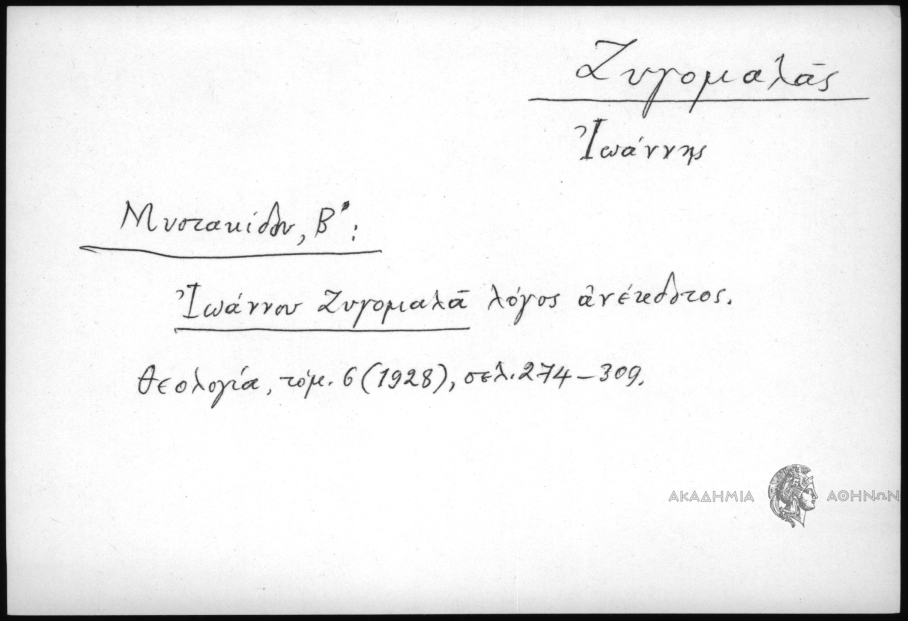 Ζυγομαλᾶς
Ἰωάννης
Μυστακίδου, Β.:
Ἰωάννου Ζυγομαλᾶ λόγος ἀνέκδοτος.
Θεολογία, τόμ. 6 (1928), σελ. 274–309.
ΑΚΑΔΗΜΙΑ ΑΘΗΝΩΝ